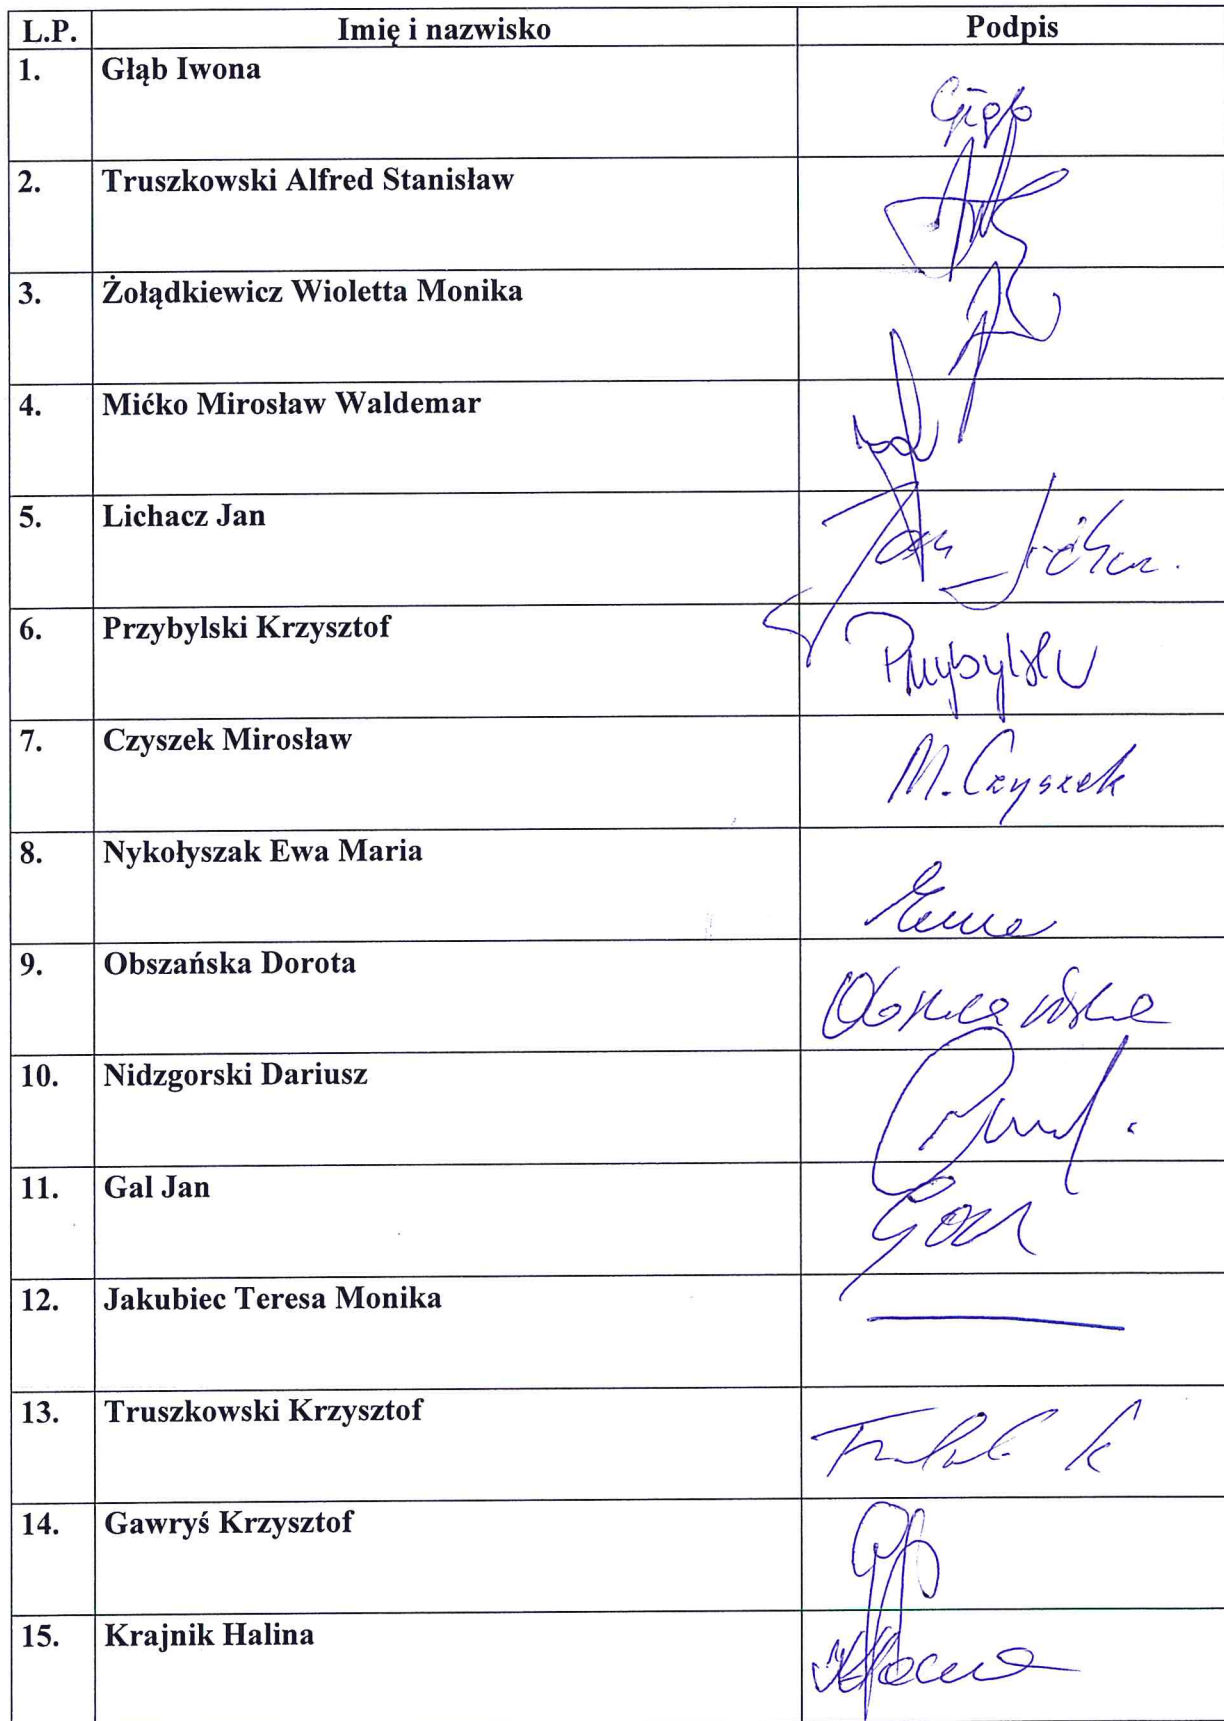 L.P. Imię i nazwisko Podpis
1. Głąb Iwona
Głąb
2. Truszkowski Alfred Stanisław
3. Żołądkiewicz Wioletta Monika
4. Mićko Mirosław Waldemar
5. Lichacz Jan
Jan
6. Przybylski Krzysztof
Przybylski
7. Czyszek Mirosław
M. Czyszek
8. Nykołyszak Ewa Maria
9. Obszańska Dorota
Obszańska
10. Nidzgorski Dariusz
11. Gal Jan
12. Jakubiec Teresa Monika
13. Truszkowski Krzysztof
14. Gawryś Krzysztof
15. Krajnik Halina